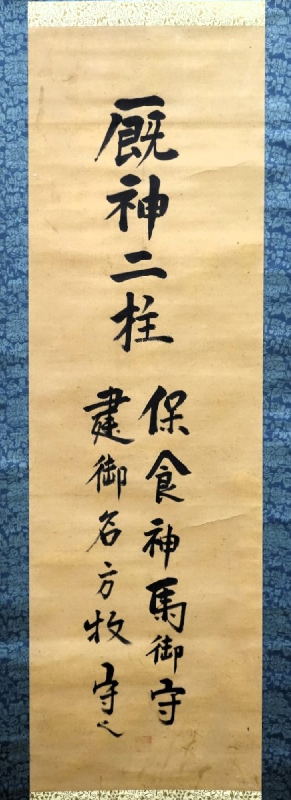 厩神二柱
保食神馬御守
建御名方牧守之